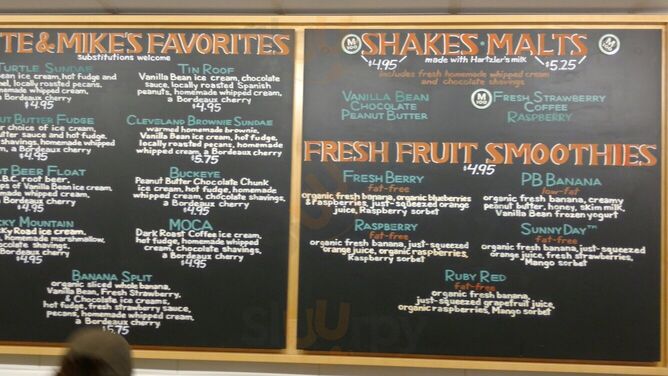 TE & MIKE'S FAVORITES
substitutions welcome
TURTLE SUNDAE
bean ice cream, hot fudge and
locally roasted pecans,
homemade whipped cream,
a Bordeaux cherry
$4.95
TIN ROOF
Vanilla Bean ice cream, chocolate
sauce, locally roasted Spanish
peanuts, homemade whipped cream,
a Bordeaux cherry
$4.95
NUT BUTTER FUDGE
choice of ice cream,
butter sauce and hot fudge,
shavings, homemade whipped
cream, a Bordeaux cherry
$4.95
CLEVELAND BROWNIE SUNDAE
warmed homemade brownie,
Vanilla Bean ice cream, hot fudge,
locally roasted pecans, homemade
whipped cream, a Bordeaux cherry
$5.75
ROOT BEER FLOAT
B.C. root beer,
ps of Vanilla Bean ice cream,
homemade whipped cream,
a Bordeaux cherry
$4.95
BUCKEYE
Peanut Butter Chocolate Chunk
ice cream, hot fudge, homemade
whipped cream, chocolate shavings,
a Bordeaux cherry
$4.95
CKY MOUNTAIN
cky Road ice cream,
homemade marshmallow,
chocolate shavings,
a Bordeaux cherry
$4.95
MOCA
Dark Roast Coffee ice cream,
hot fudge, homemade whipped
cream, chocolate shavings,
a Bordeaux cherry
$4.95
BANANA SPLIT
organic sliced whole banana,
Vanilla Bean, Fresh Strawberry,
& Chocolate ice creams,
hot fudge, fresh strawberry sauce,
pecans, homemade whipped cream,
a Bordeaux cherry
$5.75
SHAKES · MALTS
$4.95 made with Hartzler's milk $5.25
includes fresh homemade whipped cream
and chocolate shavings
VANILLA BEAN
CHOCOLATE
PEANUT BUTTER
FRESH STRAWBERRY
COFFEE
RASPBERRY
FRESH FRUIT SMOOTHIES
$4.95
FRESH BERRY
fat-free
organic fresh banana, organic blueberries
& Raspberries, just-squeezed orange
juice, Raspberry sorbet
PB BANANA
low-fat
organic fresh banana, creamy
peanut butter, honey, skim milk,
Vanilla Bean frozen yogurt
RASPBERRY
fat-free
organic fresh banana, just-squeezed
orange juice, organic raspberries,
Raspberry sorbet
SUNNYDAY™
fat-free
organic fresh banana, just-squeezed
orange juice, fresh strawberries,
Mango sorbet
RUBY RED
fat-free
organic fresh banana,
just-squeezed grapefruit juice,
organic raspberries, Mango sorbet